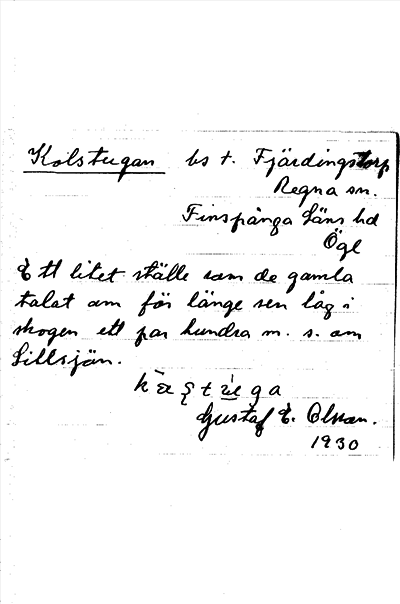 Kolstugan bs t. Fjärdingstorp
Regna sn.
Finspånga läns hd
Ögl
Ett litet ställe som de gamla
talat om för länge sen låg i
skogen ett par hundra m. s. om
Lillsjön.
Gustaf E. Olsson.
1930